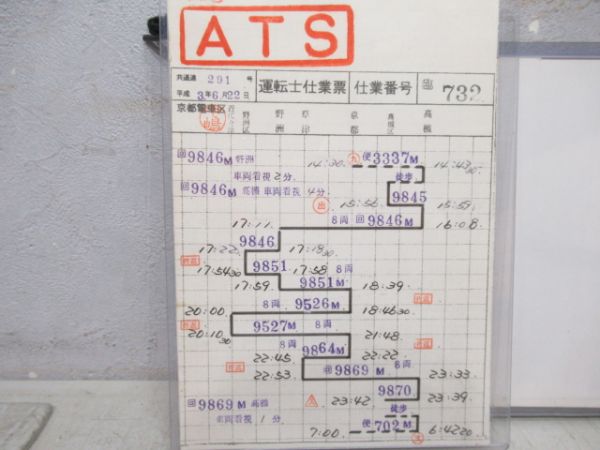 ATS
共通運 291 号
平成 3年6月22日
運転士仕業票 仕業番号 臨 732
京都電車区
野洲区 野洲 草津 京都 高槻区 高槻
回9846M 野洲
車両看視 2分
14:30 便3337M 14:43 30
徒歩
回9846M 高槻 車両看視 4分
9845
出 15:56 15:59
17:11 8両 回9846M 16:08
9846
17:22 17:18 30
9851 8両
17:54 30 17:58
17:59 9851M 18:39
8両
20:00 9526M 18:46 30
9527M 8両
20:10 30 21:48
8両
22:45 9864M 22:22
22:53 回9869M 8両 23:33
9870
回9869M 高槻
23:42 23:39
車両看視 1分
徒歩
7:00 便702M 6:42 20